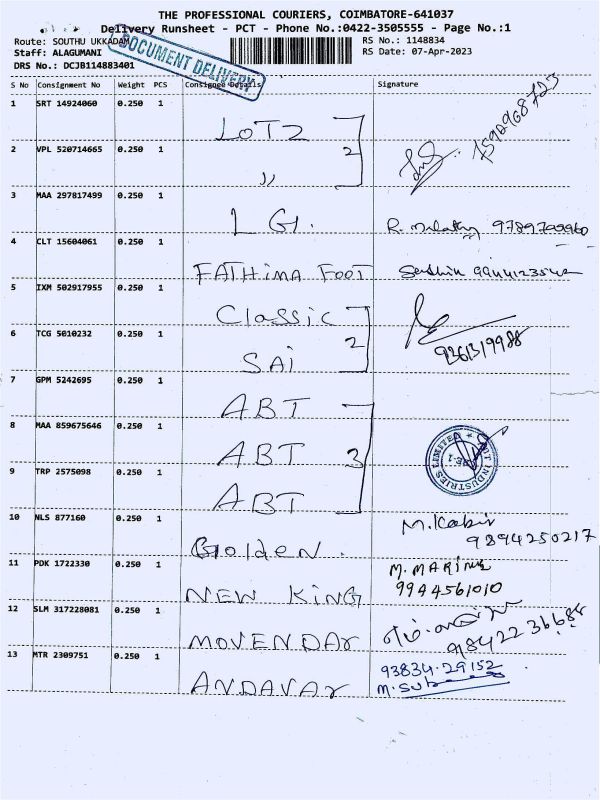 THE PROFESSIONAL COURIERS, COIMBATORE-641037
Delivery Runsheet - PCT - Phone No.:0422-3505555 - Page No.:1
Route: SOUTHU UKKADAM
RS No.: 1148834
Staff: ALAGUMANI
RS Date: 07-Apr-2023
DRS No.: DCJB114883401
DOCUMENT DELIVERY
S No Consignment No Weight PCS Consignee Details Signature
1 SRT 14924060 0.250 1
LOTZ
2 VPL 520714665 0.250 1
2
〃
3 MAA 297817499 0.250 1
LG.
R. 9789799960
4 CLT 15604061 0.250 1
FATHIMA FOOT
5 IXM 502917955 0.250 1
Classic
6 TCG 5010232 0.250 1
2
9361319988
SAI
7 GPM 5242695 0.250 1
ABT
8 MAA 859675646 0.250 1
ABT 3
INDUSTRIES LIMITED
9 TRP 2575098 0.250 1
ABT
10 NLS 877160 0.250 1
M. Kabir
9894250217
Golden.
11 PDK 1722330 0.250 1
M. MARINE
9944561010
NEW KING
12 SLM 317228081 0.250 1
MOVENDAR
13 MTR 2309751 0.250 1
93834.29152
ANDAVAR